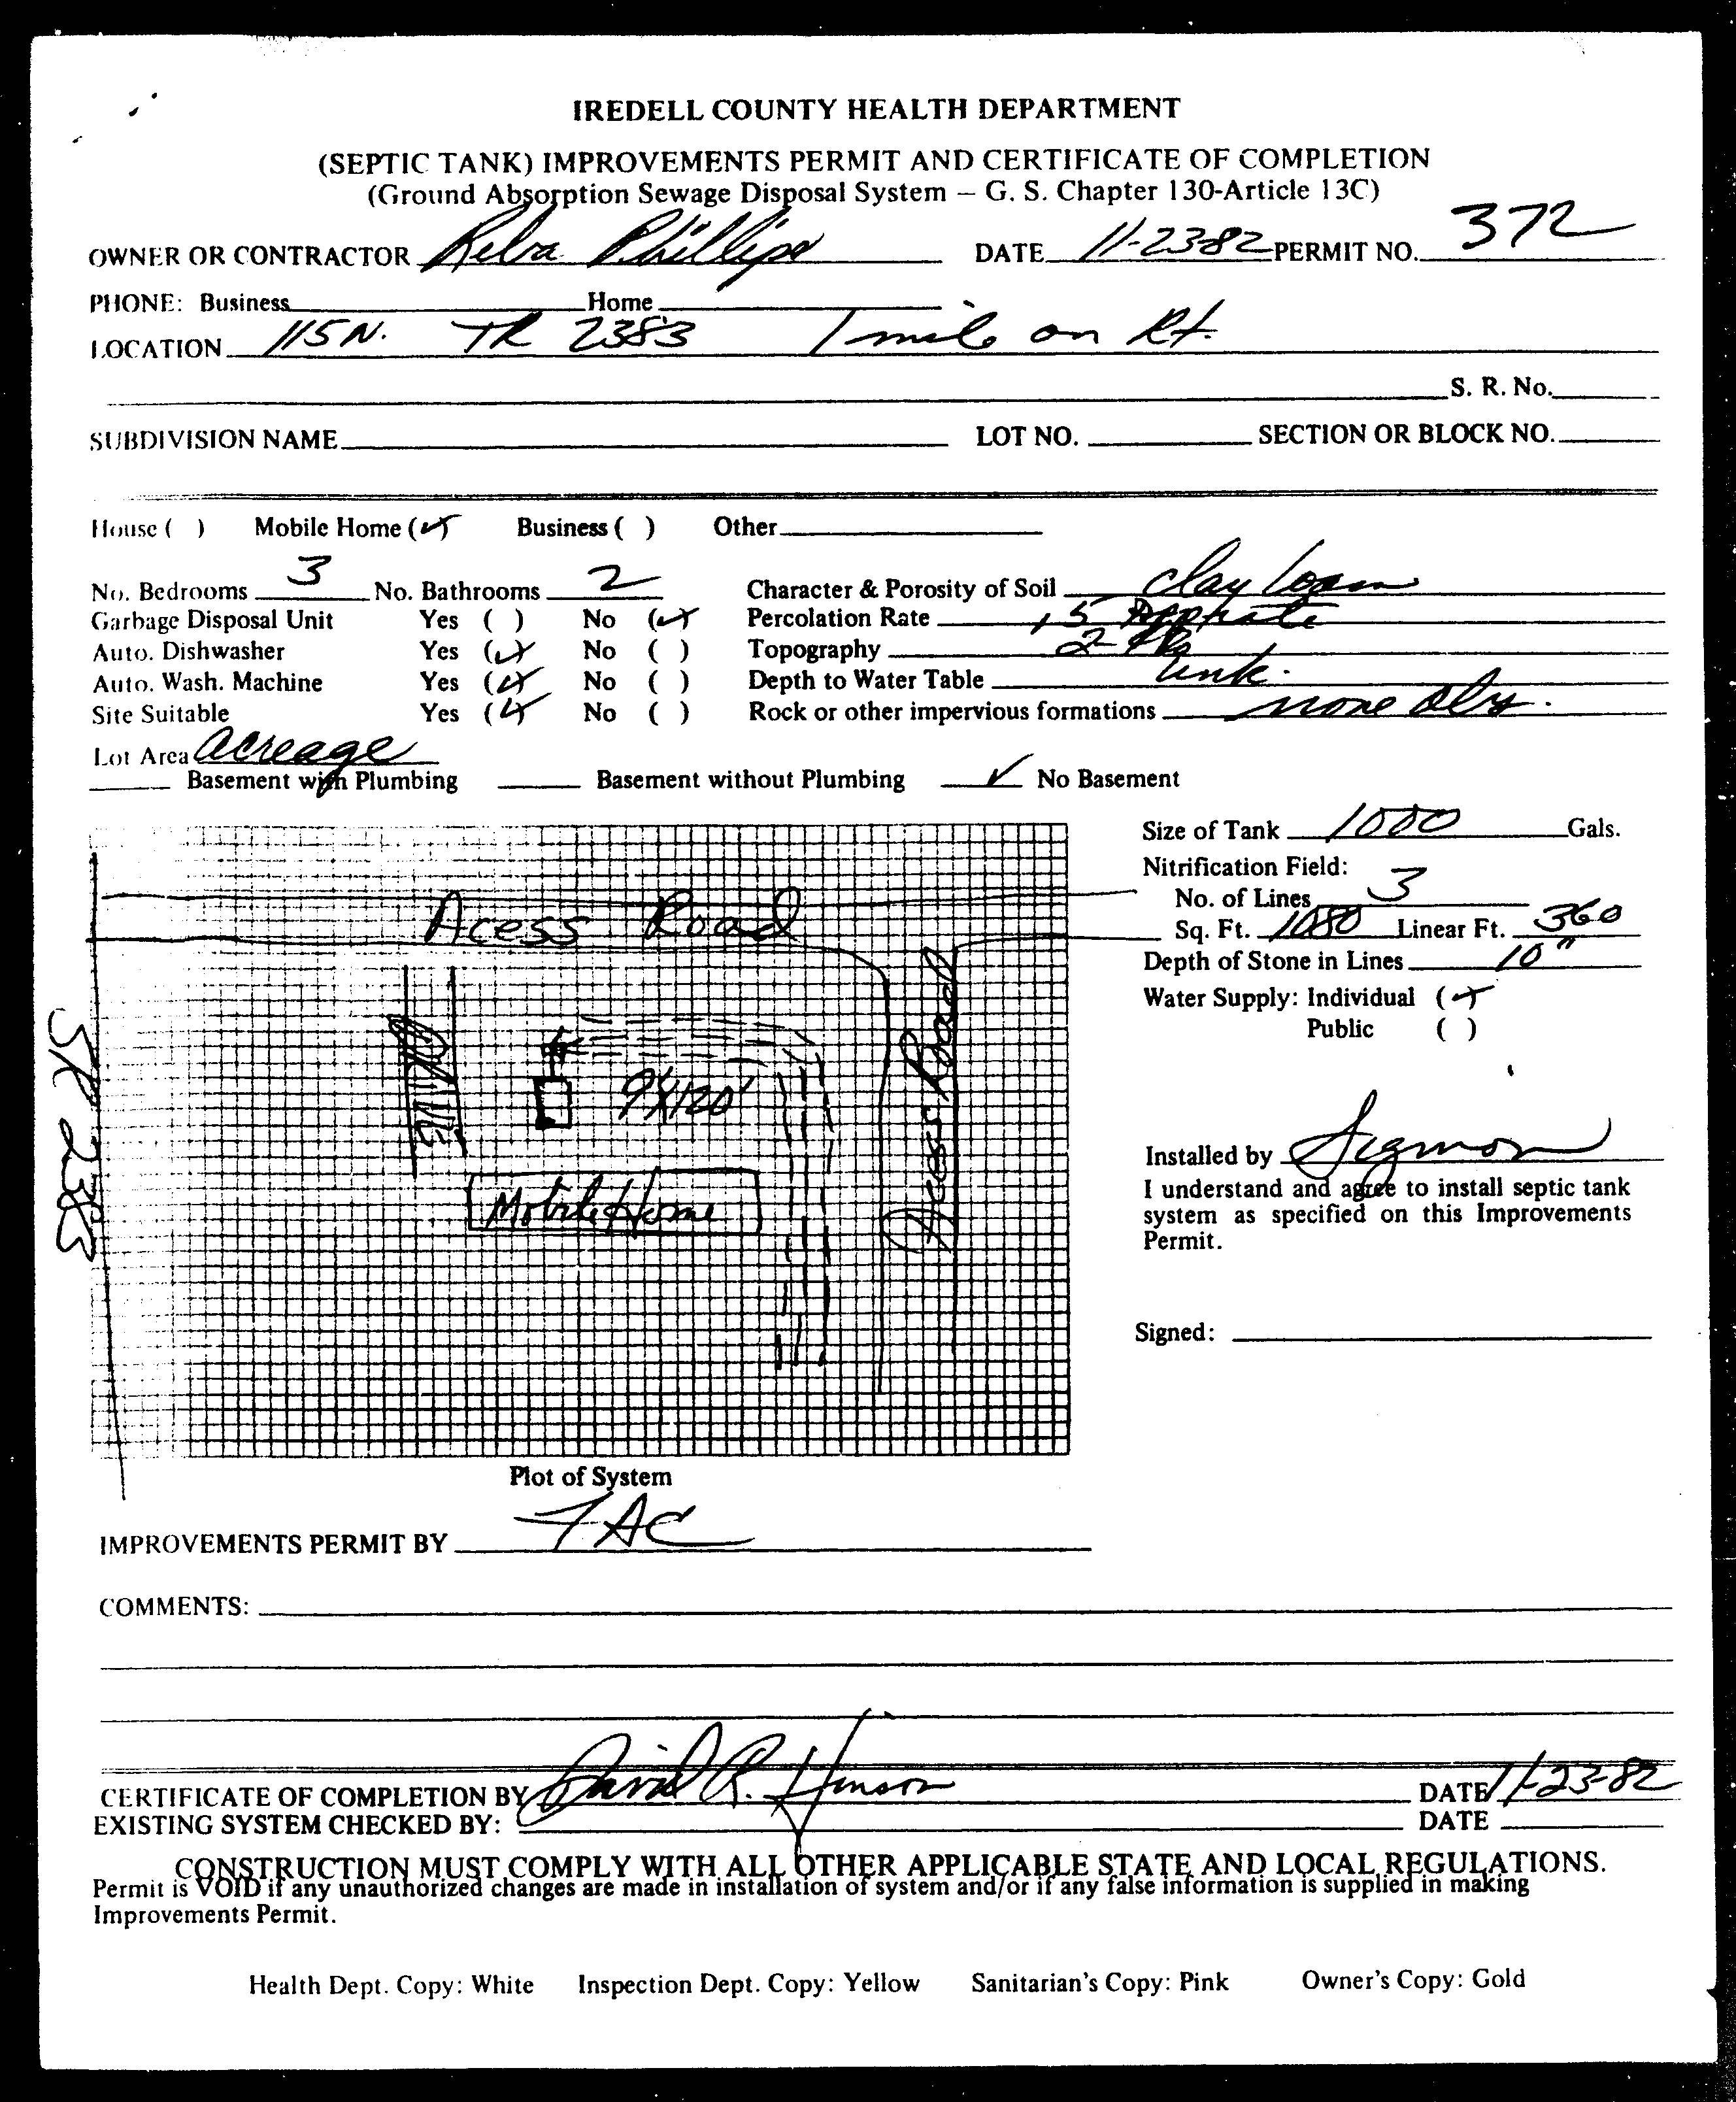 IREDELL COUNTY HEALTH DEPARTMENT
(SEPTIC TANK) IMPROVEMENTS PERMIT AND CERTIFICATE OF COMPLETION
(Ground Absorption Sewage Disposal System — G. S. Chapter 130-Article 13C)
OWNER OR CONTRACTOR Phillips DATE 11-23-82 PERMIT NO. 372
PHONE: Business Home
LOCATION 115 N. TR 2383 1 mile on Rt.
S. R. No.
SUBDIVISION NAME LOT NO. SECTION OR BLOCK NO.
House ( ) Mobile Home (✓) Business ( ) Other
No. Bedrooms 3 No. Bathrooms 2 Character & Porosity of Soil clay loam
Garbage Disposal Unit Yes ( ) No (✓) Percolation Rate
Auto. Dishwasher Yes (✓) No ( ) Topography 2
Auto. Wash. Machine Yes (✓) No ( ) Depth to Water Table unk.
Site Suitable Yes (✓) No ( ) Rock or other impervious formations none obs.
Lot Area acreage
Basement with Plumbing Basement without Plumbing ✓ No Basement
Size of Tank 1000 Gals.
Nitrification Field:
No. of Lines 3
Sq. Ft. 1080 Linear Ft. 360
Depth of Stone in Lines 10"
Water Supply: Individual (✓)
Public ( )
Acess Road
Acess Road
Drive
9'X120'
Mobile Home
SR 2383
Installed by Sigmon
I understand and agree to install septic tank
system as specified on this Improvements
Permit.
Signed:
Plot of System
IMPROVEMENTS PERMIT BY FAC
COMMENTS:
CERTIFICATE OF COMPLETION BY David R. Hinson DATE 11-23-82
EXISTING SYSTEM CHECKED BY: DATE
CONSTRUCTION MUST COMPLY WITH ALL OTHER APPLICABLE STATE AND LOCAL REGULATIONS.
Permit is VOID if any unauthorized changes are made in installation of system and/or if any false information is supplied in making
Improvements Permit.
Health Dept. Copy: White Inspection Dept. Copy: Yellow Sanitarian's Copy: Pink Owner's Copy: Gold